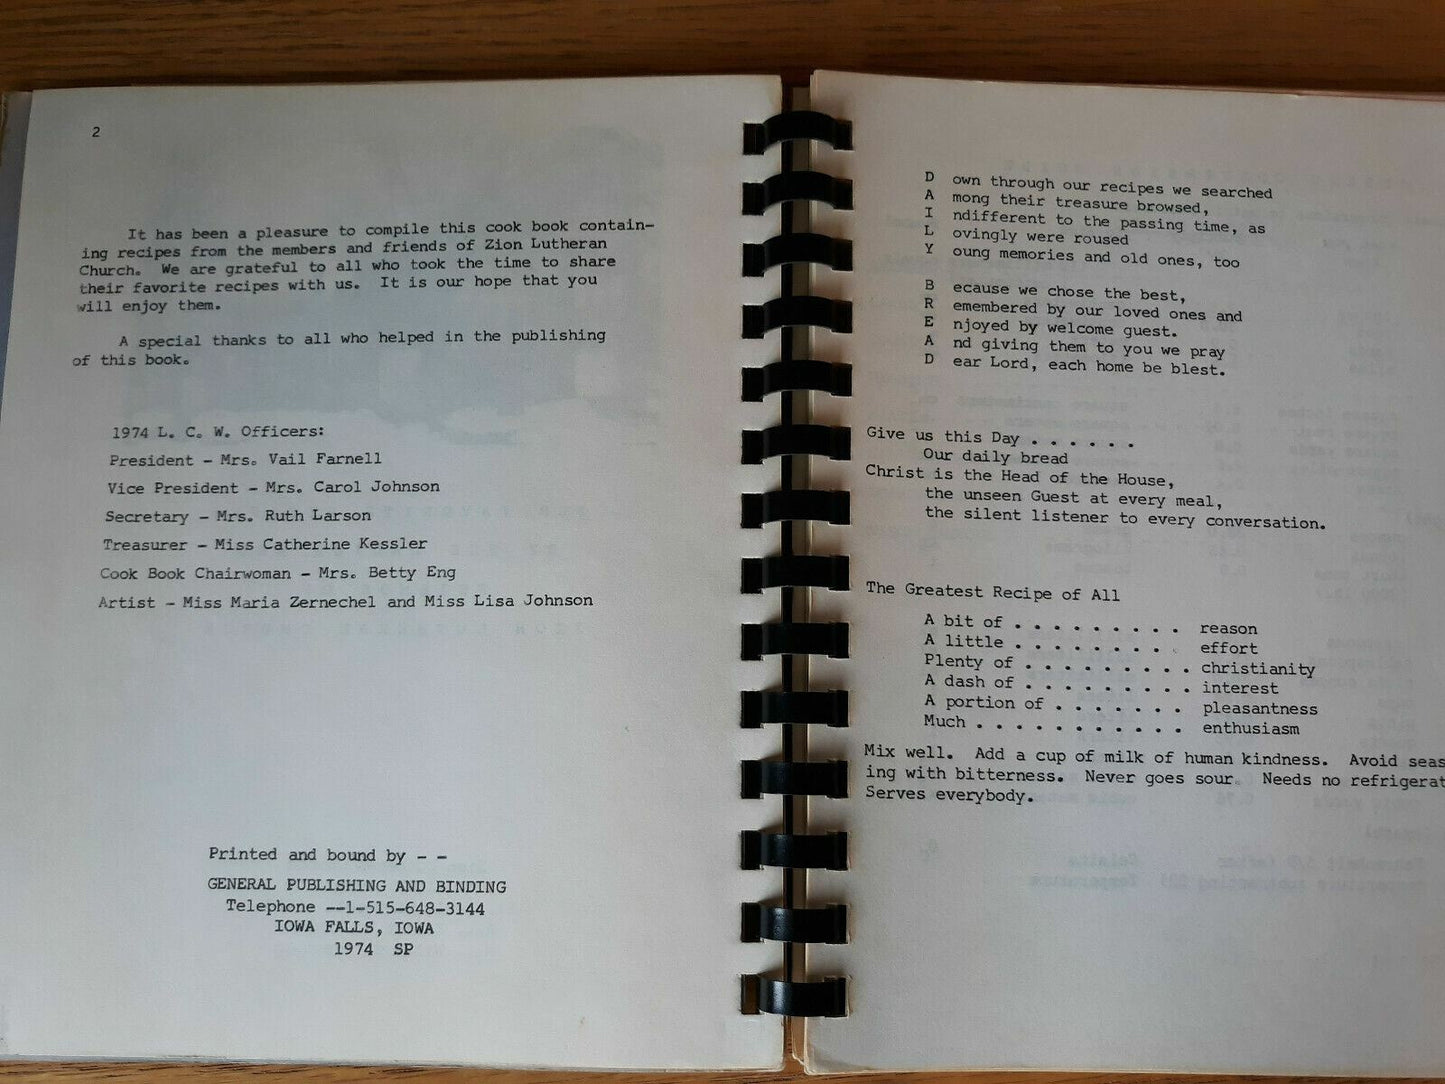 2
It has been a pleasure to compile this cook book contain-
ing recipes from the members and friends of Zion Lutheran
Church. We are grateful to all who took the time to share
their favorite recipes with us. It is our hope that you
will enjoy them.
A special thanks to all who helped in the publishing
of this book.
1974 L. C. W. Officers:
President - Mrs. Vail Farnell
Vice President - Mrs. Carol Johnson
Secretary - Mrs. Ruth Larson
Treasurer - Miss Catherine Kessler
Cook Book Chairwoman - Mrs. Betty Eng
Artist - Miss Maria Zernechel and Miss Lisa Johnson
Printed and bound by - -
GENERAL PUBLISHING AND BINDING
Telephone --1-515-648-3144
IOWA FALLS, IOWA
1974 SP
D own through our recipes we searched
A mong their treasure browsed,
I ndifferent to the passing time, as
L ovingly were roused
Y oung memories and old ones, too
B ecause we chose the best,
R emembered by our loved ones and
E njoyed by welcome guest.
A nd giving them to you we pray
D ear Lord, each home be blest.
Give us this Day . . . . . .
Our daily bread
Christ is the Head of the House,
the unseen Guest at every meal,
the silent listener to every conversation.
The Greatest Recipe of All
A bit of . . . . . . . . . reason
A little . . . . . . . . . effort
Plenty of . . . . . . . . . christianity
A dash of . . . . . . . . . interest
A portion of . . . . . . . pleasantness
Much . . . . . . . . . . . enthusiasm
Mix well. Add a cup of milk of human kindness. Avoid seas
ing with bitterness. Never goes sour. Needs no refrigerat
Serves everybody.